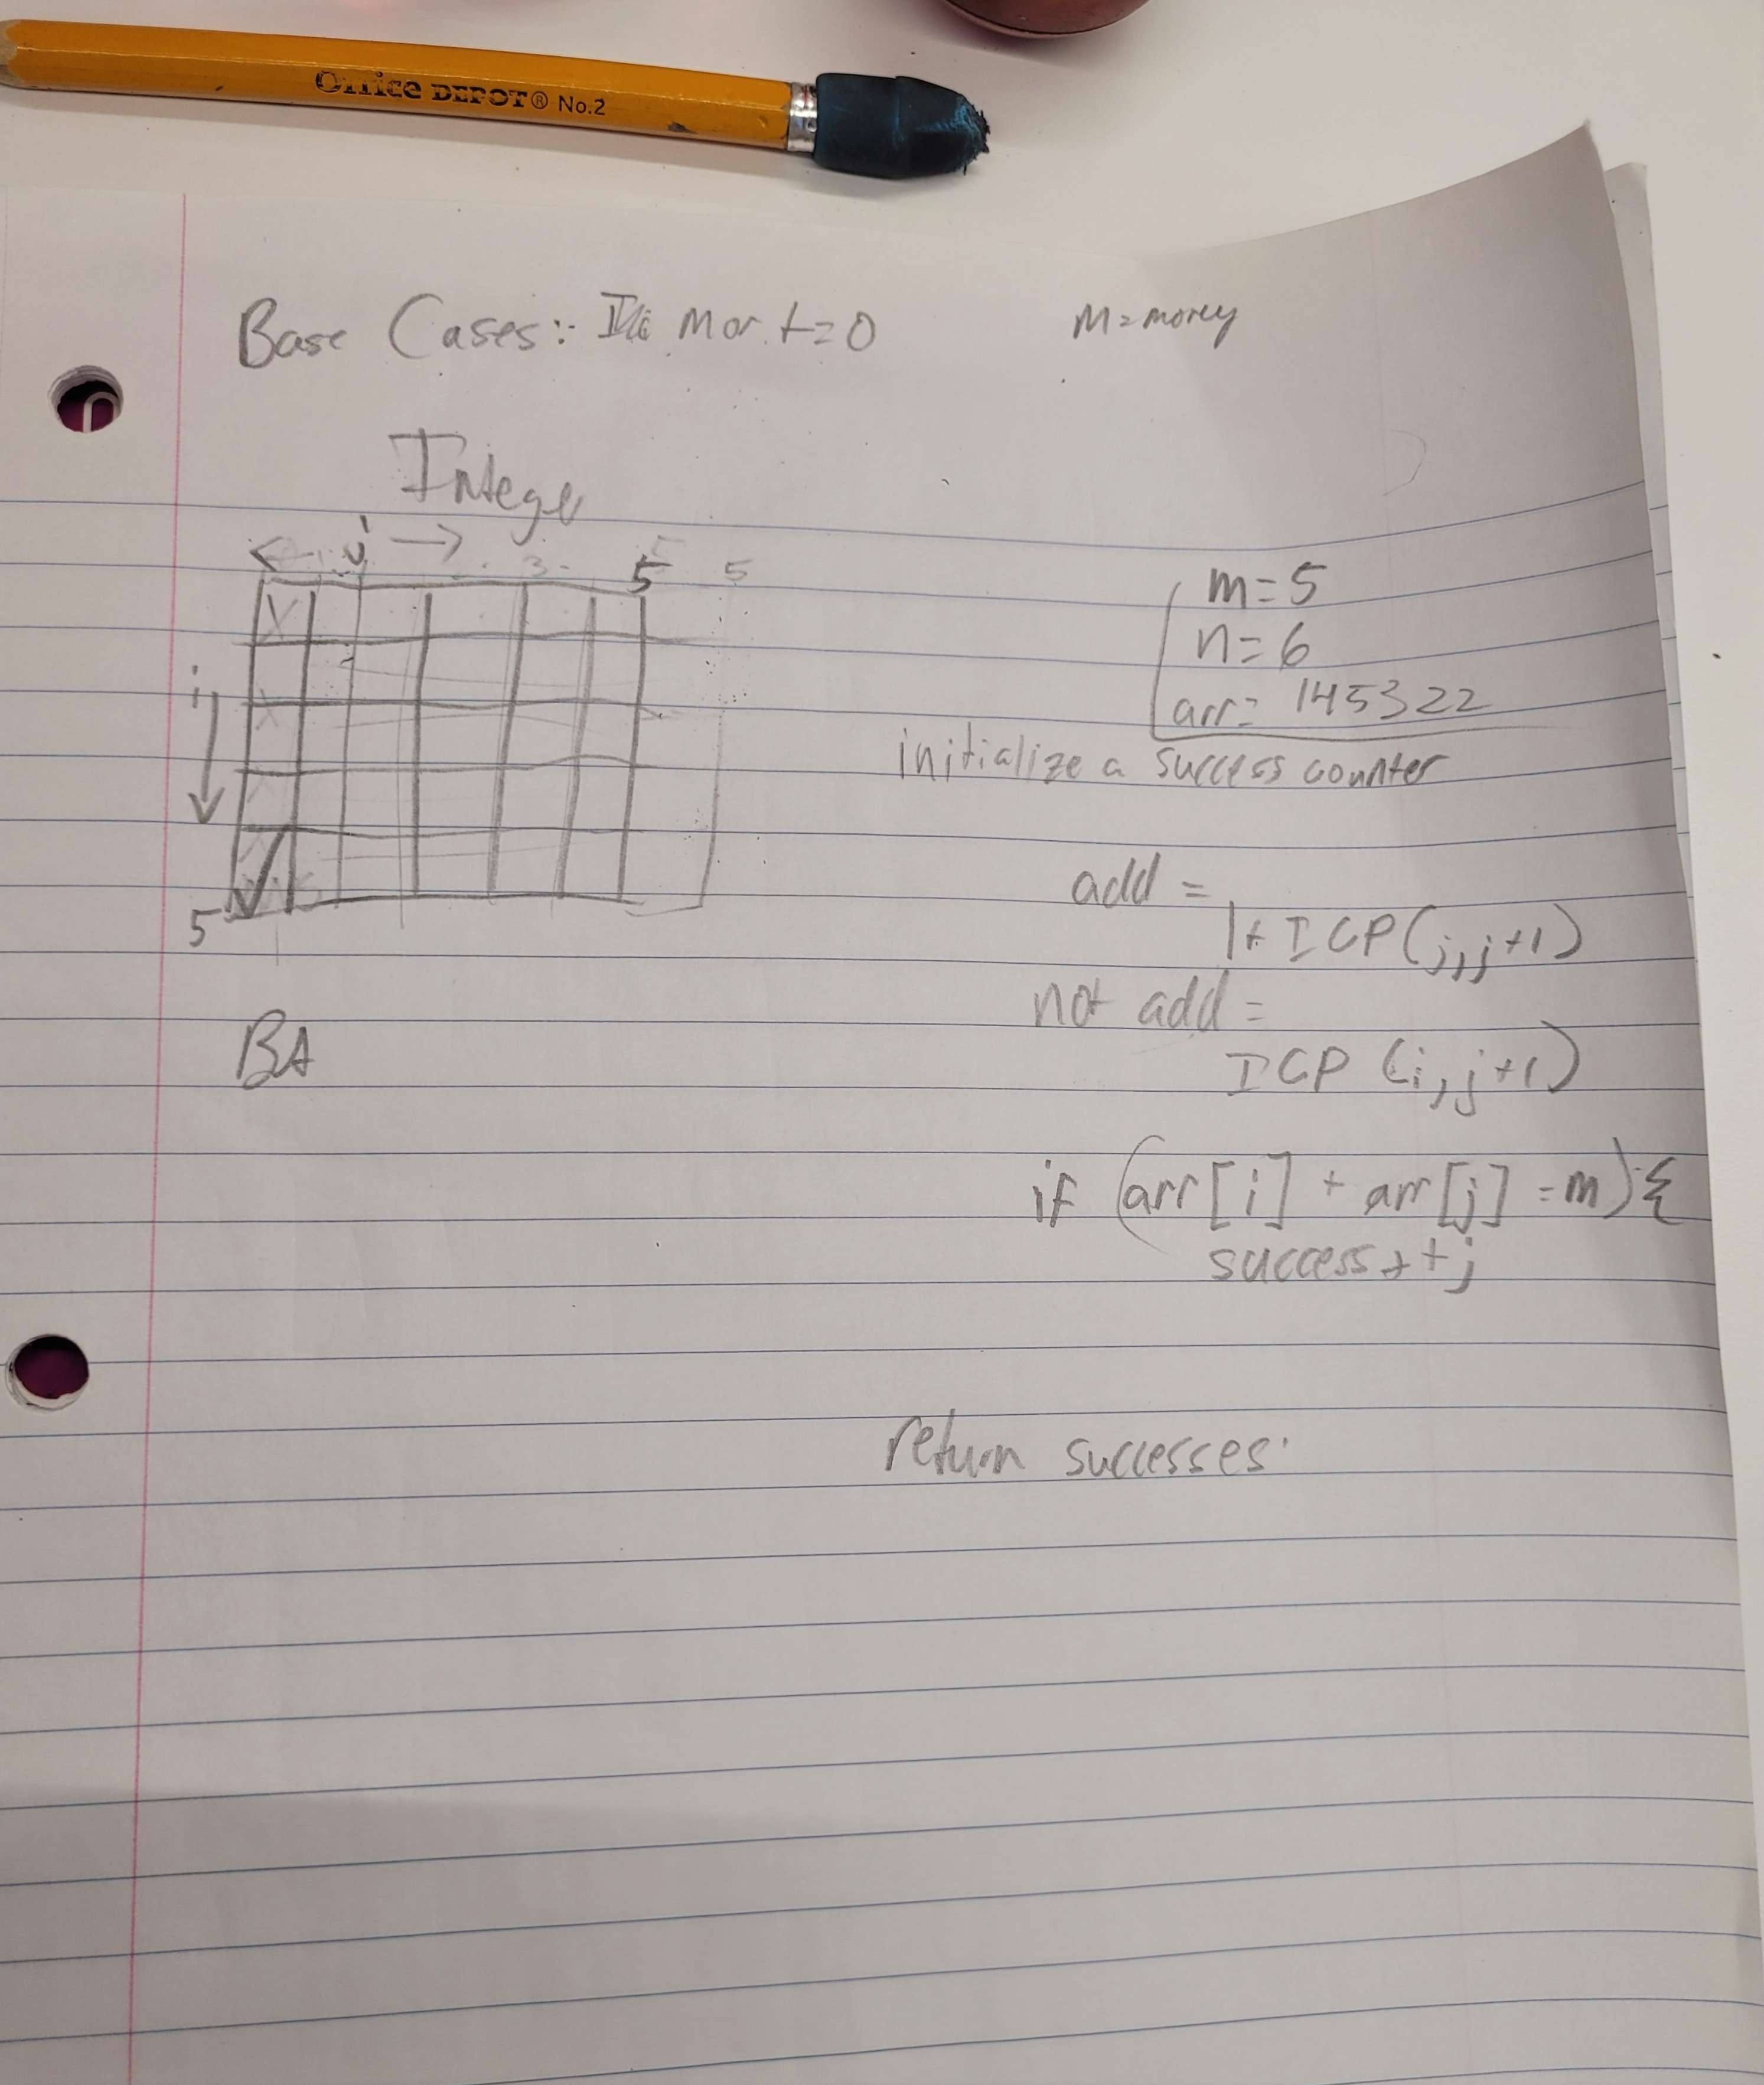 Office DEPOT® No.2
Base Cases: m or t=0
m=money
Integer
j
3
5
5
i
5
m=5
n=6
arr= 145322
initialize a success counter
add =
1+ICP(j,j+1)
not add =
ICP (i,j+1)
BA
if (arr[i] + arr[j] =m){
success++;
return successes